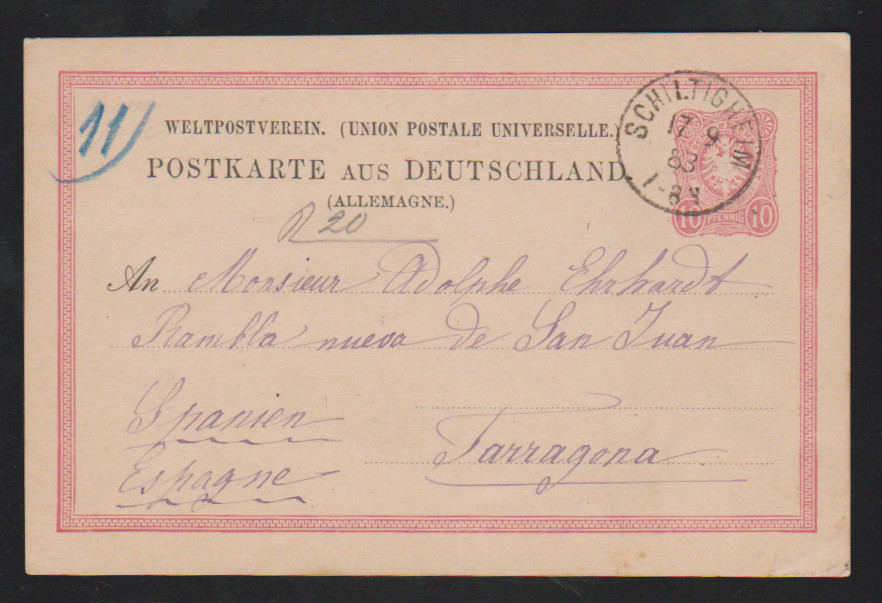 11
WELTPOSTVEREIN. (UNION POSTALE UNIVERSELLE.)
POSTKARTE AUS DEUTSCHLAND
(ALLEMAGNE.)
SCHILTIGHEIM
17 9
83
1-8 N
10 PFENNIG 10
R 20
An Monsieur Adolphe Ehrhardt
Rambla nueva de San Juan
Spanien
Tarragona
Espagne